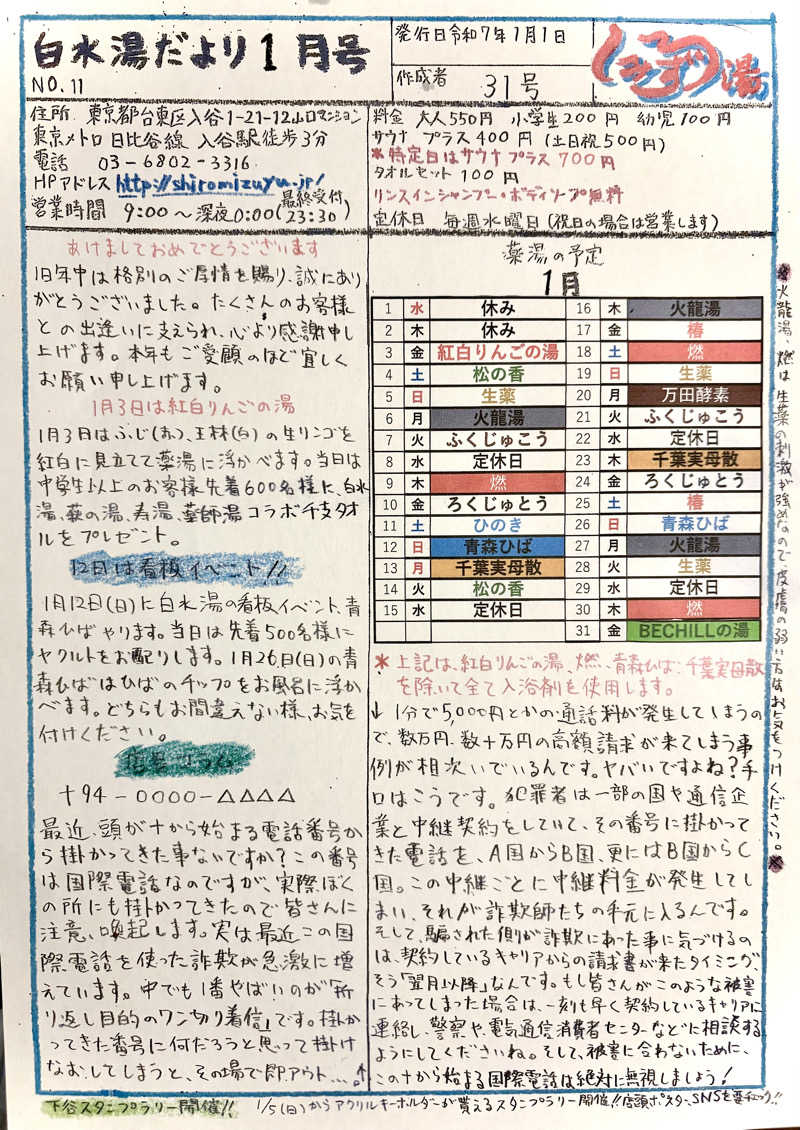 白水湯だより1月号
NO.11
発行日令和7年1月1日
作成者 31号
湯
住所 東京都台東区入谷1-21-12山口マンション
東京メトロ 日比谷線 入谷駅徒歩3分
電話 03-6802-3316
HPアドレス http://shiromizuyu.jp/
営業時間 9:00〜深夜0:00(最終受付23:30)
料金 大人550円 小学生200円 幼児100円
サウナ プラス400円(土日祝500円)
*特定日はサウナプラス700円
タオルセット 100円
リンスインシャンプー・ボディソープ無料
定休日 毎週水曜日(祝日の場合は営業します)
あけましておめでとうございます
旧年中は格別のご厚情を賜り、誠にあり
がとうございました。たくさんのお客様
との出逢いに支えられ、心より感謝申し
上げます。本年もご愛顧のほど宜しく
お願い申し上げます。
1月3日は紅白りんごの湯
1月3日はふじ(赤)、王林(白)の生リンゴを
紅白に見立てて薬湯に浮かべます。当日は
中学生以上のお客様先着600名様に、白水
湯、萩の湯、寿湯、薬師湯コラボ干支タオ
ルをプレゼント。
12日は看板イベント!!
1月12日(日)に白水湯の看板イベント、青
森ひばやります。当日は先着500名様に
ヤクルトをお配りします。1月26日(日)の青
森ひばはひばのチップをお風呂に浮か
べます。どちらもお間違えない様、お気を
付けください。
†94-○○○○-△△△△
最近、頭が十から始まる電話番号か
ら掛かってきた事ないですか?この番号
は国際電話なのですが、実際ぼく
の所にも掛かってきたので皆さんに
注意、喚起します。実は最近この国
際電話を使った詐欺が急激に増
えています。中でも1番やばいのが「折
り返し目的のワン切り着信」です。掛か
ってきた番号に何だろうと思って掛け
なおしてしまうと、その場で即アウト…。↑
薬湯の予定
1月
1 水 休み 16 木 火龍湯
2 木 休み 17 金 椿
3 金 紅白りんごの湯 18 土 燃
4 土 松の香 19 日 生薬
5 日 生薬 20 月 万田酵素
6 月 火龍湯 21 火 ふくじゅこう
7 火 ふくじゅこう 22 水 定休日
8 水 定休日 23 木 千葉実母散
9 木 燃 24 金 ろくじゅこう
10 金 ろくじゅとう 25 土 椿
11 土 ひのき 26 日 青森ひば
12 日 青森ひば 27 月 火龍湯
13 月 千葉実母散 28 火 生薬
14 火 松の香 29 水 定休日
15 水 定休日 30 木 燃
31 金 BECHILLの湯
*上記は、紅白りんごの湯、燃、青森ひば、千葉実母散
を除いて全て入浴剤を使用します。
↓1分で5,000円とかの通話料が発生してしまうの
で、数万円、数十万円の高額請求が来てしまう事
例が相次いでいるんです。ヤバいですよね?手
口はこうです。犯罪者は一部の国や通信企
業と中継契約をしていて、その番号に掛かって
きた電話を、A国からB国、更にはB国からC
国。この中継ごとに中継料金が発生してし
まい、それが詐欺師たちの手元に入るんです。
そして、騙された側が詐欺にあった事に気づけるの
は、契約しているキャリアからの請求書が来たタイミング、
そう「翌月以降」なんです。もし皆さんがこのような被害
にあってしまった場合は、一刻も早く契約しているキャリアに
連絡し、警察や、電気通信消費者センターなどに相談する
ようにしてくださいね。そして、被害に合わないために、
この十から始まる国際電話は絶対に無視しましょう!
*火龍湯、燃は生薬の刺激が強めなので、皮膚の弱い方はお気をつけください。*
下谷スタンプラリー開催!! 1/5(日)からアクリルキーホルダーが貰えるスタンプラリー開催!!店頭ポスター、SNSを要チェック!!